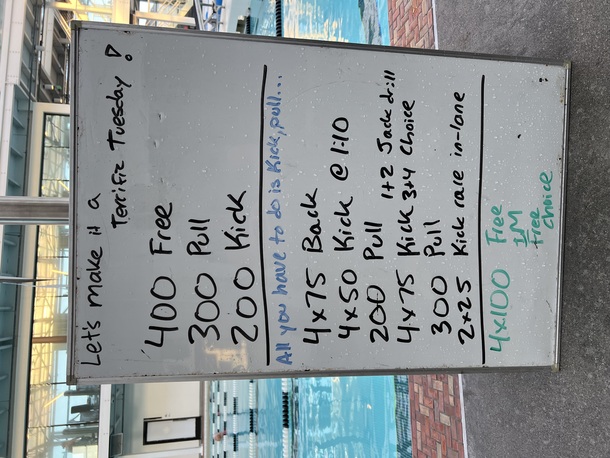 Let's make it a
Terrific Tuesday!
400 Free
300 Pull
200 Kick
All you have to do is Kick, pull...
4x75 Back
4x50 Kick @ 1:10
200 Pull
1+2 Jack drill
4x75 Kick 3+4 Choice
300 Pull
2x25 Kick race in-lane
4x100 Free
IM
Free
Choice